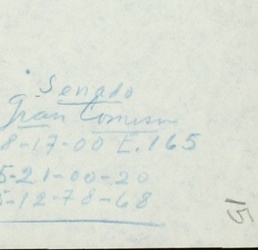 Senado
Gran Comisión
8-17-00 E.165
5-21-00-20
5-12-78-68
15